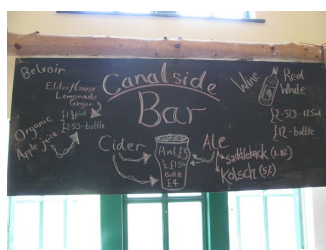 Canalside
Bar
Belvoir
Elderflower
Lemonade
Ginger
£1.50 - bottle
Organic
Apple juice
Cider
Pint £3
½ £1.50
Bottle
£4
Ale
Saddleback (3.8%)
Kolsch (5%)
Wine
Red
White
£2-50 - 125ml
£12 - bottle